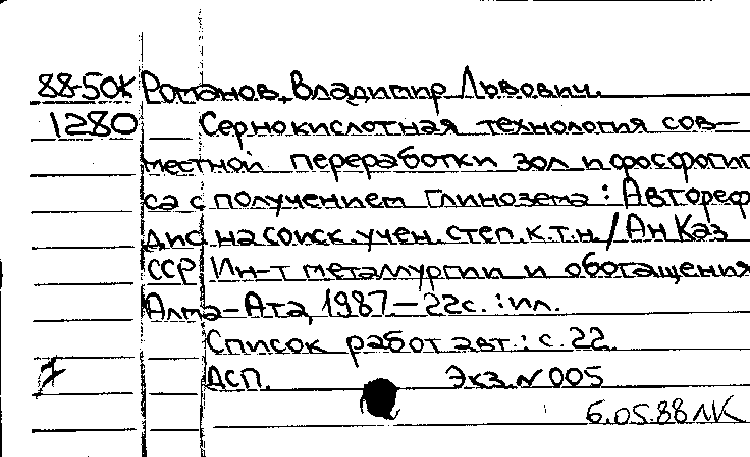 88-50К Романов, Владимир Львович.
1280 Сернокислотная технология сов-
местной переработки зол и фосфогип
са с получением глинозема : Автореф
дис на соиск. учен. степ. к.т.н. / Ан Каз
ССР Ин-т металлургии и обогащения
Алма-Ата, 1987 — 22с. : ил.
Список работ авт. : с. 22.
ДСП. Экз. N 005
6.05.88 ЛК